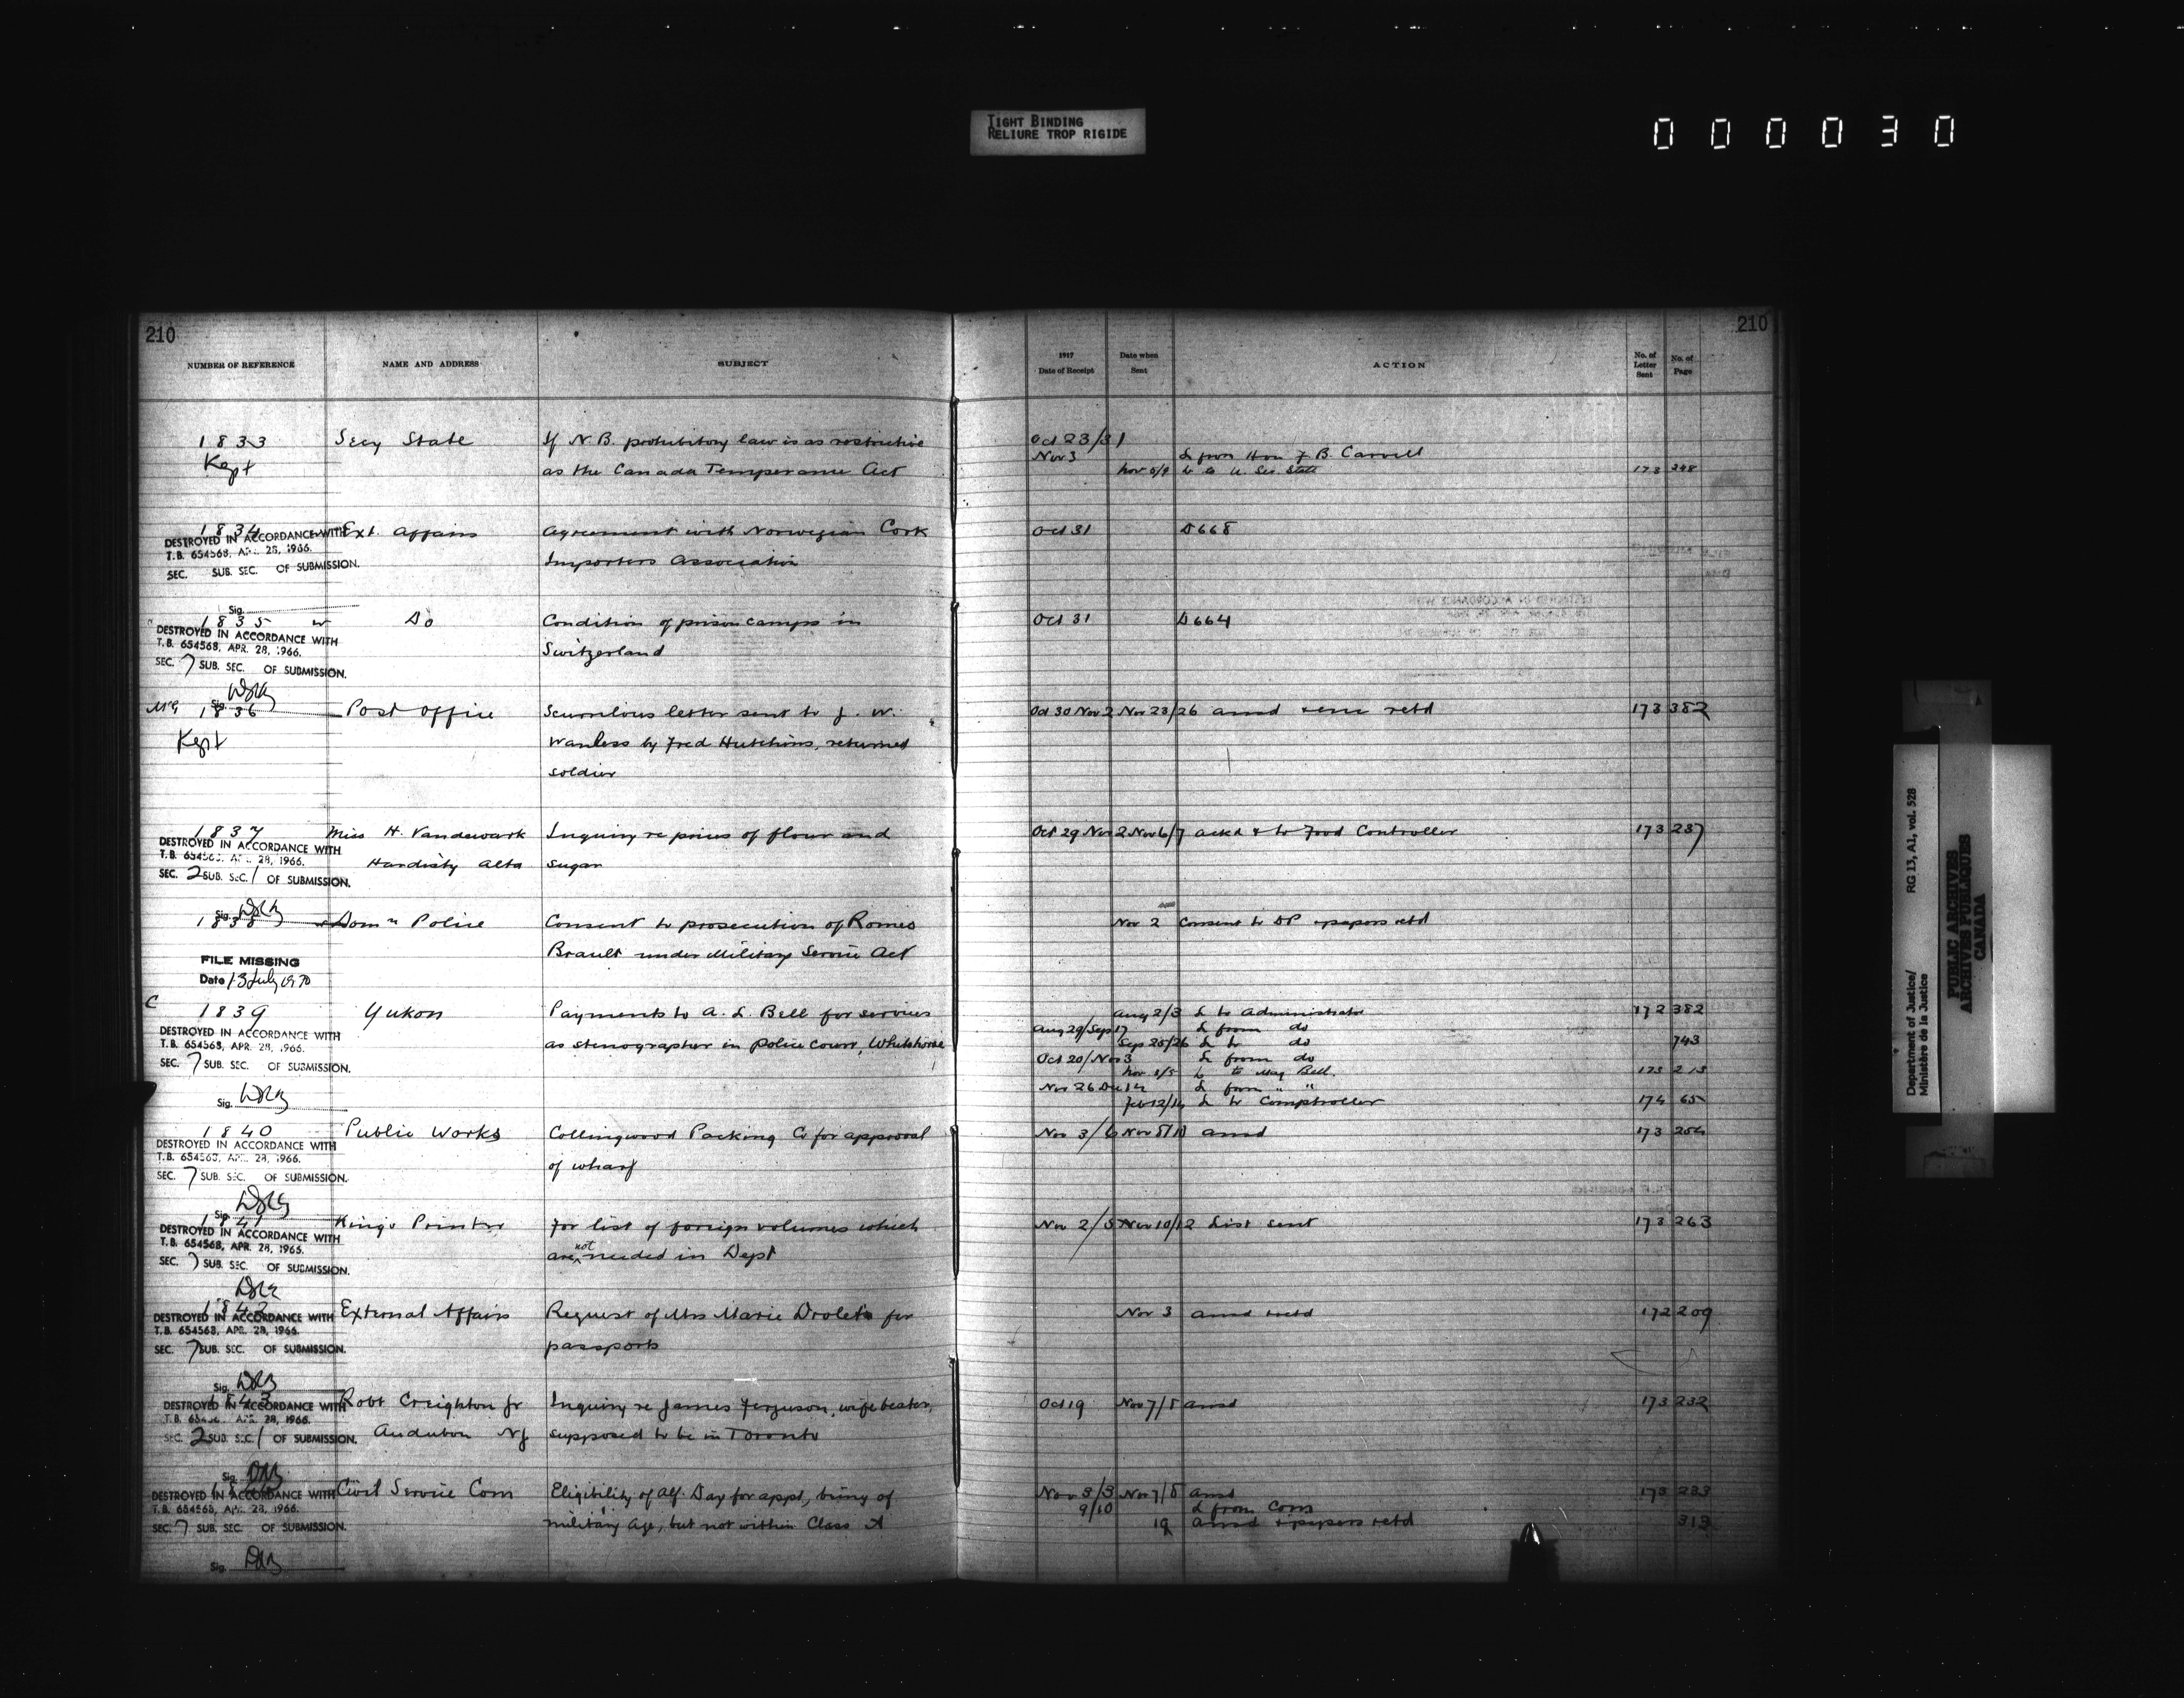 TIGHT BINDING
RELIURE TROP RIGIDE
000030
210
210
NUMBER OF REFERENCE NAME AND ADDRESS SUBJECT 1917 Date of Receipt Date when Sent ACTION No. of Letter Sent No. of Page
1833 Secy State If N.B. prohibitory law is as restrictive Oct 23/31
Kept as the Canada Temperance Act Nov 3 L from Hon F B. Carvell
L to U. Sec. State 173 248
1834 Ext. Affairs Agreement with Norwegian Cork Oct 31 D668
DESTROYED IN ACCORDANCE WITH
T.B. 654568, APR. 28, 1966.
Importers Association
SEC. SUB. SEC. OF SUBMISSION.
Sig.
1835 Do Condition of prison camps in Oct 31 D664
DESTROYED IN ACCORDANCE WITH
T.B. 654568, APR. 28, 1966.
Switzerland
SEC. 7 SUB. SEC. OF SUBMISSION.
Sig.
1836 Post Office Scurrilous letter sent to J. W. Oct 30 Nov 2 Nov 23/26 ansd & enc retd 173 382
Kept Wanless by Fred Hutchins, returned
soldier
1837 Miss H. Vandewark Inquiry re prices of flour and Oct 29 Nov 2 Nov 6/7 ackd & to Food Controller 173 237
DESTROYED IN ACCORDANCE WITH
T.B. 654568, APR. 28, 1966.
Hardisty Alta sugar
SEC. 2 SUB. SEC. 1 OF SUBMISSION.
Sig.
1838 Domn Police Consent to prosecution of Romeo Nov 2 Consent to DP & papers retd
Brault under Military Service Act
FILE MISSING
Date 13 July 1970
C
1839 Yukon Payments to A. L. Bell for services Aug 2/3 L to Administrator 172 382
Aug 29/Sep 17 L from do
DESTROYED IN ACCORDANCE WITH
T.B. 654568, APR. 28, 1966.
as stenographer in Police Court, Whitehorse Sep 25/26 L to do 743
SEC. 7 SUB. SEC. OF SUBMISSION.
Oct 20/Nov 3 L from do
Nov 3/5 L to Mag Bell. 173 213
Nov 26 Dec 14 L from " "
Sig.
Feb 12/14 L to Comptroller 174 65
1840 Public Works Collingwood Packing Co for approval Nov 3/6 Nov 8/10 ansd 173 254
DESTROYED IN ACCORDANCE WITH
T.B. 654568, APR. 28, 1966.
of wharf
SEC. 7 SUB. SEC. OF SUBMISSION.
Sig.
1841 Kings Printer For list of foreign volumes which Nov 2/5 Nov 10/12 List sent 173 263
DESTROYED IN ACCORDANCE WITH
T.B. 654568, APR. 28, 1966.
are not needed in Dept
SEC. 7 SUB. SEC. OF SUBMISSION.
1842 External Affairs Request of Mrs Marie Drolets for Nov 3 ansd & retd 172 209
DESTROYED IN ACCORDANCE WITH
T.B. 654568, APR. 28, 1966.
passports
SEC. 7 SUB. SEC. OF SUBMISSION.
Sig.
1843 Robt Creighton Jr Inquiry re James Ferguson, wife beater, Oct 19 Nov 7/8 ansd 173 232
DESTROYED IN ACCORDANCE WITH
T.B. 654568, APR. 28, 1966.
Audubon NJ supposed to be in Toronto
SEC. 2 SUB. SEC. 1 OF SUBMISSION.
Sig.
Civil Service Com Eligibility of Alf. Day for appt, being of Nov 3/3 Nov 7/8 ansd 173 233
DESTROYED IN ACCORDANCE WITH
T.B. 654568, APR. 28, 1966.
9/10 L from Com
military age, but not within Class A 19 ansd & papers retd 313
SEC. 7 SUB. SEC. OF SUBMISSION.
Sig.
Department of Justice/
Ministère de la Justice
RG 13, A1, vol. 528
PUBLIC ARCHIVES
ARCHIVES PUBLIQUES
CANADA